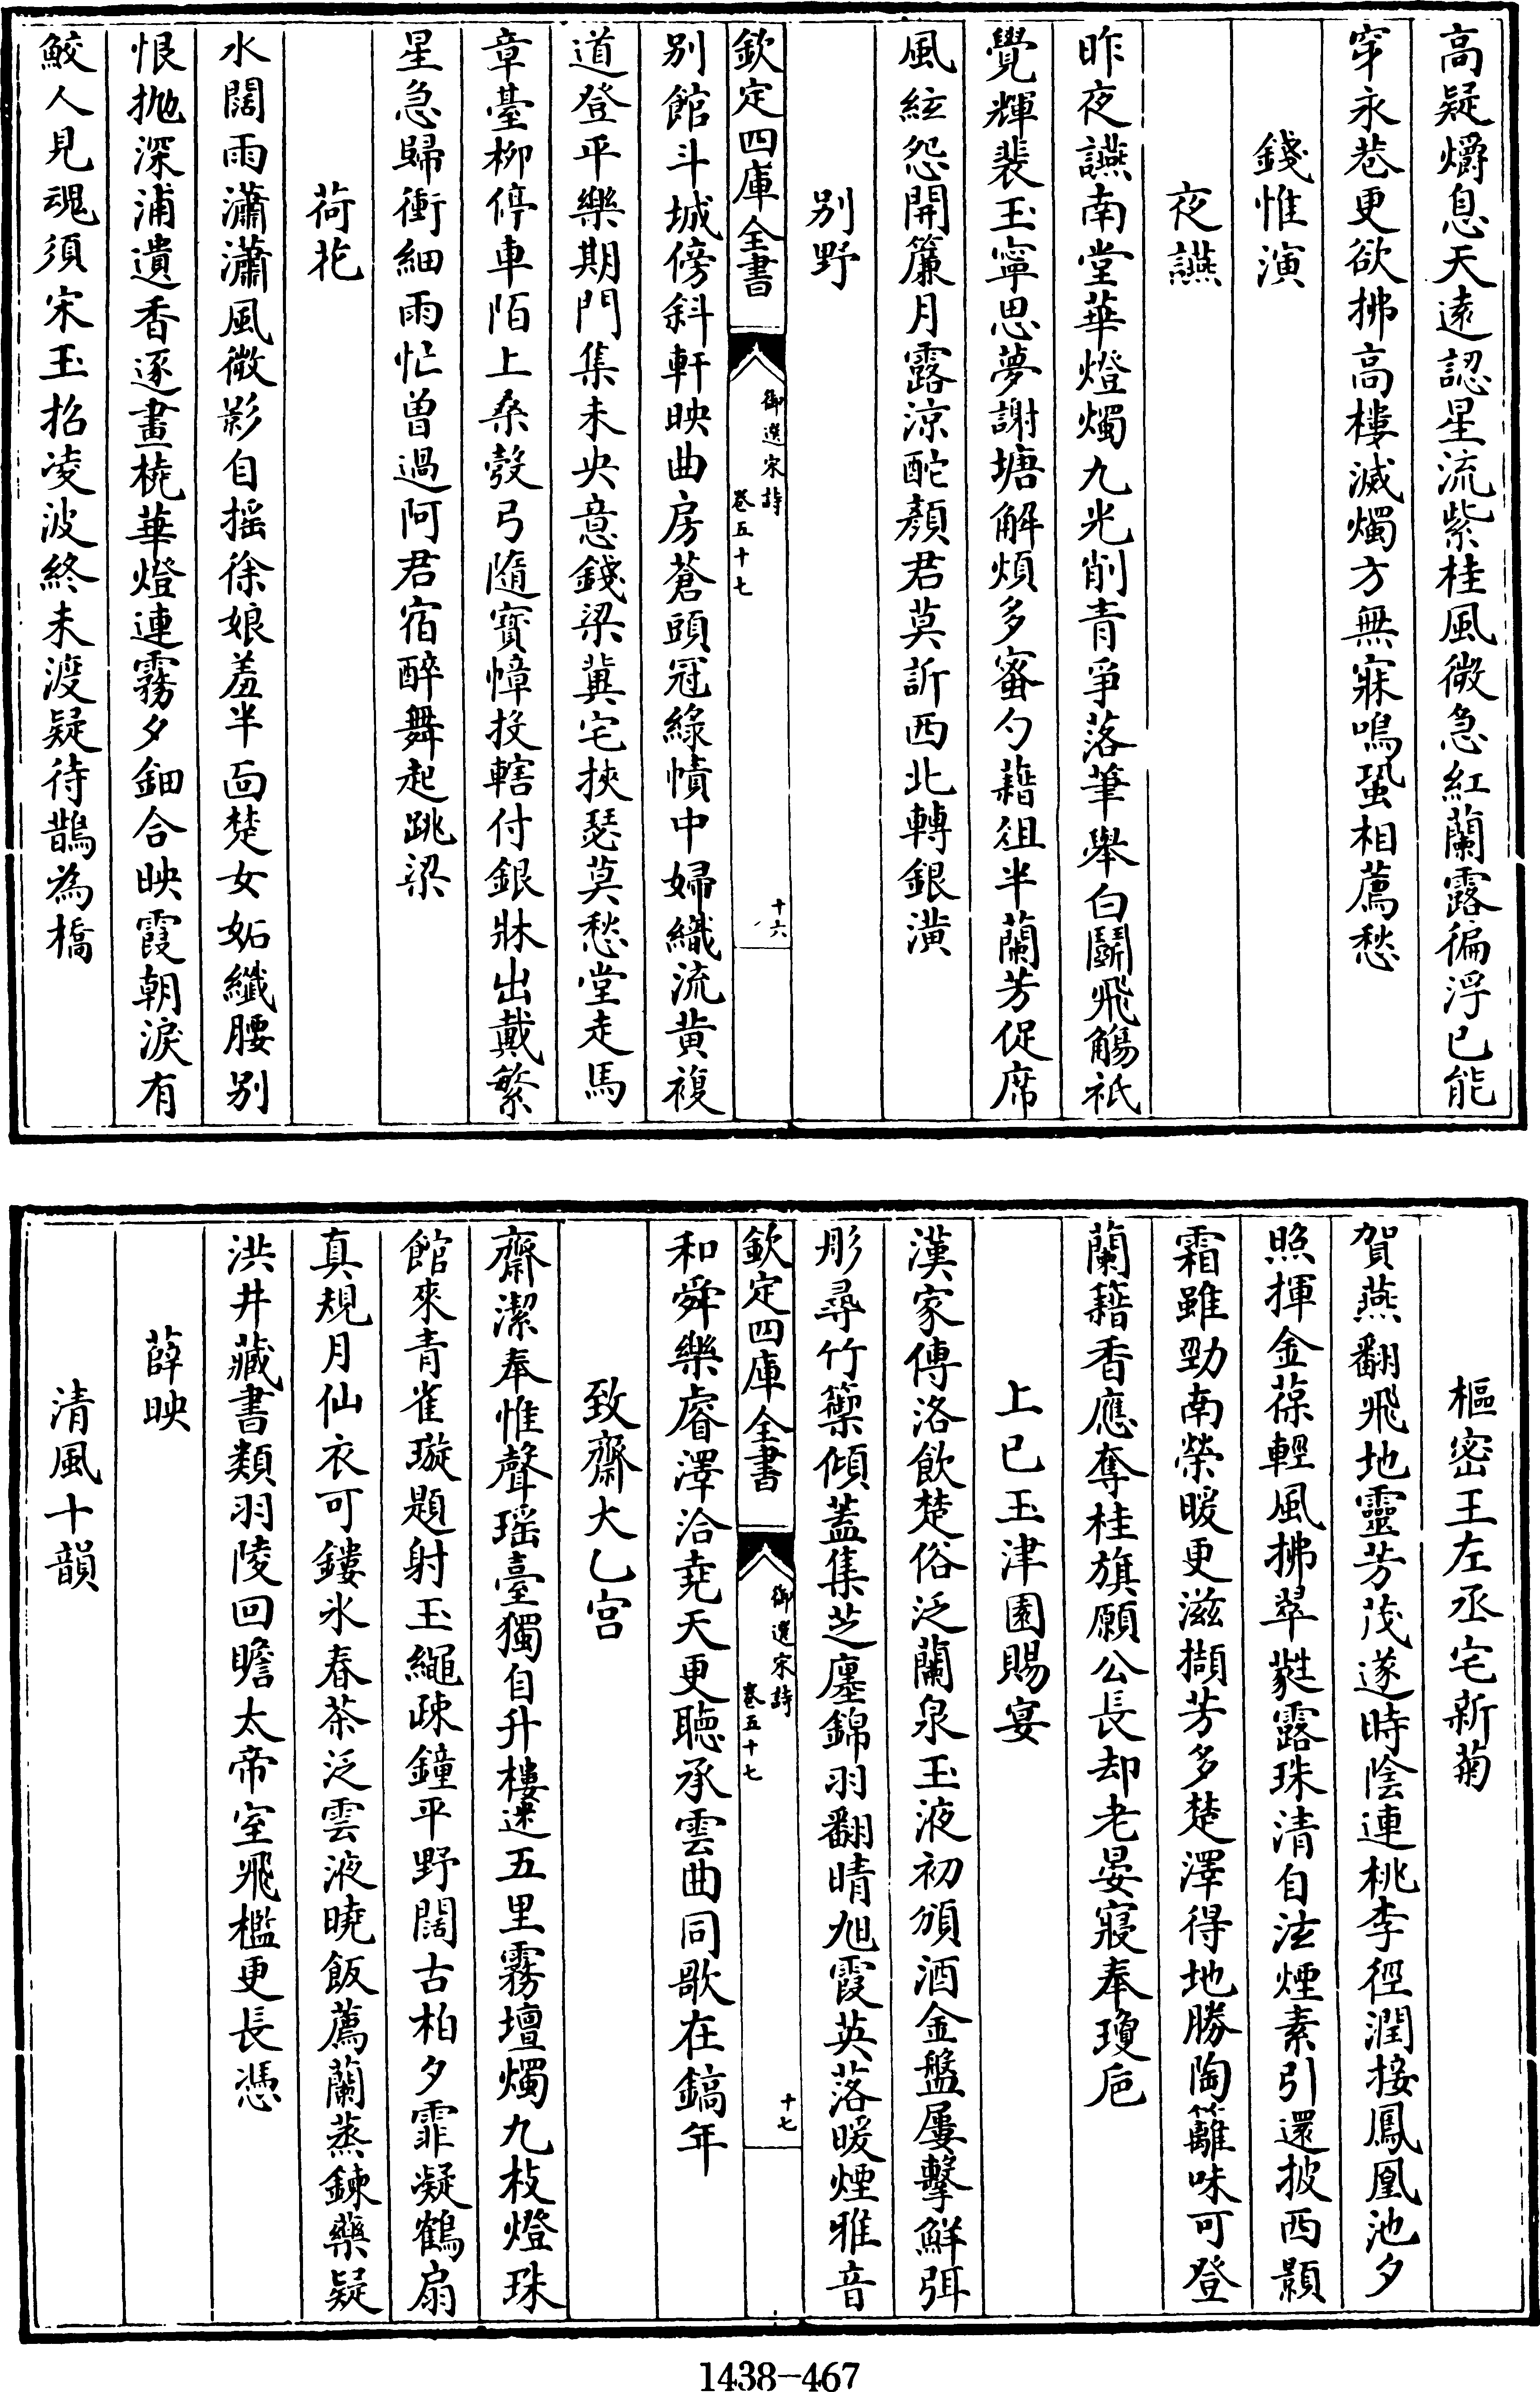 高疑爝息天遠認星流紫桂風微急紅蘭露徧浮已能
穿永巷更欲拂高樓滅燭方無寐鳴蛩相薦愁
錢惟演
夜讌
昨夜讌南堂華燈燭九光削青爭落筆舉白鬬飛觴祇
覺輝裴玉寧思夢謝塘解煩多蜜勺藉俎半蘭芳促席
風絃怨開簾月露涼酡顏君莫訢西北轉銀潢
别野
欽定四庫全書
御選宋詩
卷五十七
十六
别館斗城傍斜軒映曲房蒼頭冠綠幘中婦織流黄複
道登平樂期門集未央意錢梁冀宅挾瑟莫愁堂走馬
章臺柳停車陌上桑彀弓隨寳幛投轄付銀牀出戴繁
星急歸衝細雨忙曾過阿君宿醉舞起跳梁
荷花
水闊雨瀟瀟風微影自摇徐娘羞半面楚女妬纖腰别
恨抛深浦遺香逐畫橈華燈連霧夕鈿合映霞朝淚有
鮫人見魂須宋玉招凌波終未渡疑待鵲為橋
樞密王左丞宅新菊
賀燕翻飛地靈芳茂遂時陰連桃李徑潤接鳳凰池夕
照揮金葆輕風拂翠蕤露珠清自泫煙素引還披西顥
霜雖勁南榮暖更滋擷芳多楚澤得地勝陶籬味可登
蘭籍香應奪桂旗願公長却老晏寢奉瓊卮
上已玉津園賜宴
漢家傳洛飲楚俗泛蘭泉玉液初頒酒金盤屢擊鮮弭
彤尋竹籞傾蓋集芝廛錦羽翻晴旭霞英落暖煙雅音
欽定四庫全書
御選宋詩
卷五十七
十七
和舜樂睿澤洽堯天更聴承雲曲同歌在鎬年
致齋大乙宫
齋潔奉惟馨瑶臺獨自升樓迷五里霧壇燭九枝燈珠
館來青雀璇題射玉繩疎鐘平野闊古柏夕霏凝鶴扇
真規月仙衣可鏤氷春茶泛雲液曉飯薦蘭蒸鍊藥疑
洪井藏書類羽陵回瞻太帝室飛檻更長憑
薛映
清風十韻
1438-467